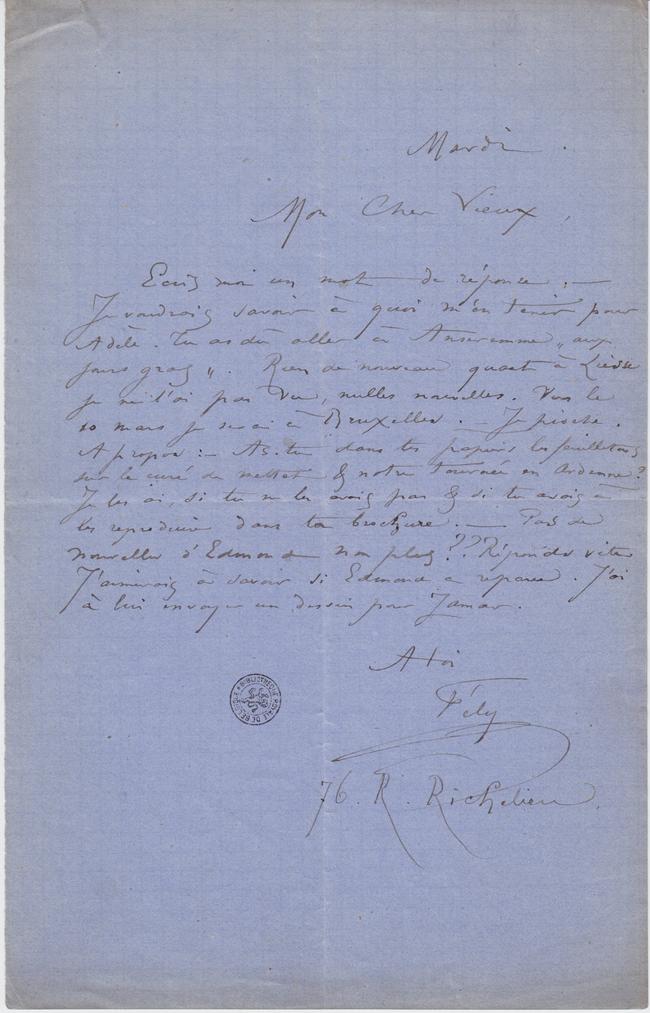 Mardi.
Mon Cher Vieux,
Ecris moi un mot de réponse. —
Je voudrais savoir à quoi m'en tenir pour
Adèle. Tu as dû aller à Anseremme „ aux
jours gras „. Rien de nouveau quant à
je ne l'ai pas vue, nulles nouvelles. Vers le
10 mars je serai à Bruxelles. — Je pioche.
A propos : — As-tu dans tes papiers les feuilletons
sur le curé de Mettet & notre tournée en Ardenne?
Je les ai, si tu ne les avais pas & si tu avais à
les reproduire dans ta brochure. — Pas de
nouvelles d'Edmond non plus ??? Réponds vite
J'aimerais à savoir si Edmond a reparu. J'ai
à lui envoyer un dessin pour
A toi
Fély
76. R. Richelieu.
BIBLIOTHÈQUE ROYALE DE BELGIQUE